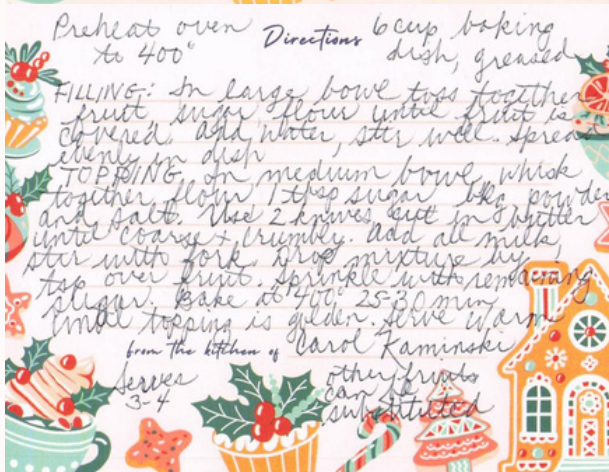 Preheat oven to 400°
Directions
6 cup baking dish, greased
FILLING: In large bowl toss together
fruit sugar flour until fruit is
covered. Add water, stir well. Spread
evenly in dish
TOPPING. In medium bowl, whisk
together flour 1 tbsp sugar bkg powder
and salt. Use 2 knives, cut in butter
until coarse + crumbly. Add all milk
stir with fork. Drop mixture by
tsp over fruit. Sprinkle with remaining
sugar. Bake at 400° 25-30 min
until topping is golden. Serve warm
from the kitchen of Carol Kaminski
Serves
3-4
other fruits
can be
substituted